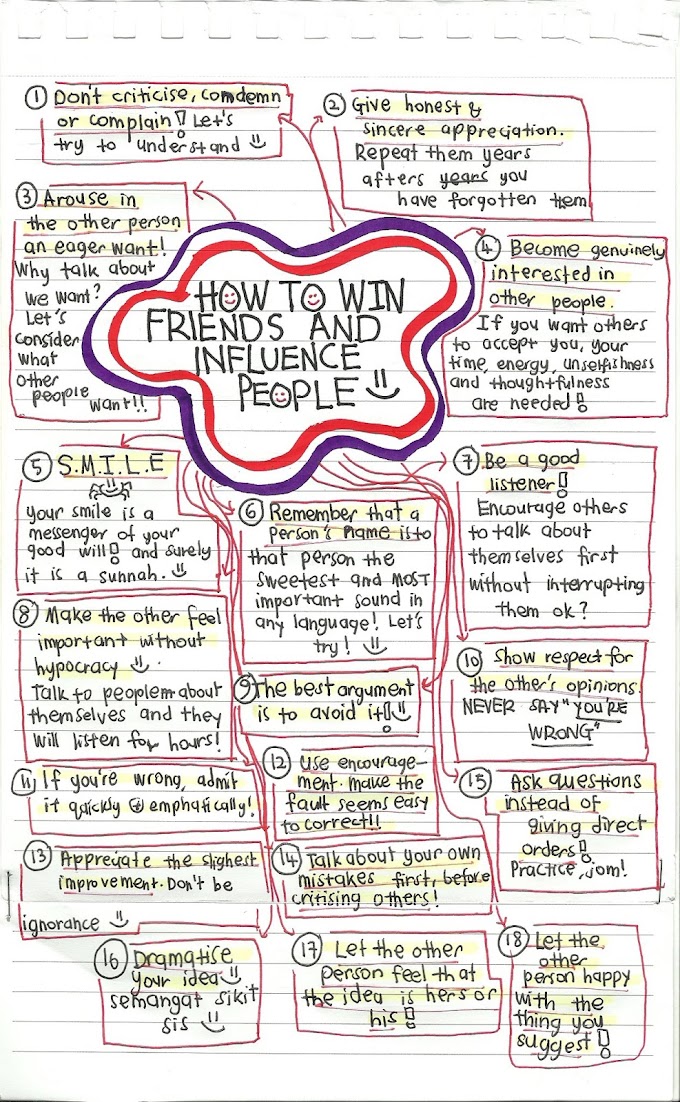 HOW TO WIN
FRIENDS AND
INFLUENCE
PEOPLE
1 Don't criticise, comdemn
or complain! Let's
try to understand
2 Give honest &
sincere appreciation.
Repeat them years
afters years you
have forgotten them
3 Arouse in
the other person
an eager want!
Why talk about
we want?
Let's
consider
what
other
people
want!!
4 Become genuinely
interested in
other people.
If you want others
to accept you, your
time, energy, unselfishness
and thoughtfulness
are needed!
5 S.M.I.L.E
your smile is a
messenger of your
good will! and surely
it is a sunnah.
6 Remember that a
person's name is to
that person the
sweetest and MOST
important sound in
any language! Let's
try!
7 Be a good
listener!
Encourage others
to talk about
themselves first
without interrupting
them ok?
8 Make the other feel
important without
hypocracy
Talk to peoplem about
themselves and they
will listen for hours!
9 The best argument
is to avoid it!
10 Show respect for
the other's opinions.
NEVER SAY "YOU'RE
WRONG"
11 If you're wrong, admit
it quickly & emphatically!
12 Use encourage-
ment. Make the
fault seems easy
to correct!!
13 Appreciate the slighest
improvement. Don't be
ignorance
14 Talk about your own
mistakes first, before
critising others!
15 Ask questions
instead of
giving direct
orders!
Practice, jom!
16 Dramatise
your idea
semangat sikit
sis
17 Let the other
person feel that
the idea is hers or
his!
18 Let the
other
person happy
with the
thing you
suggest!